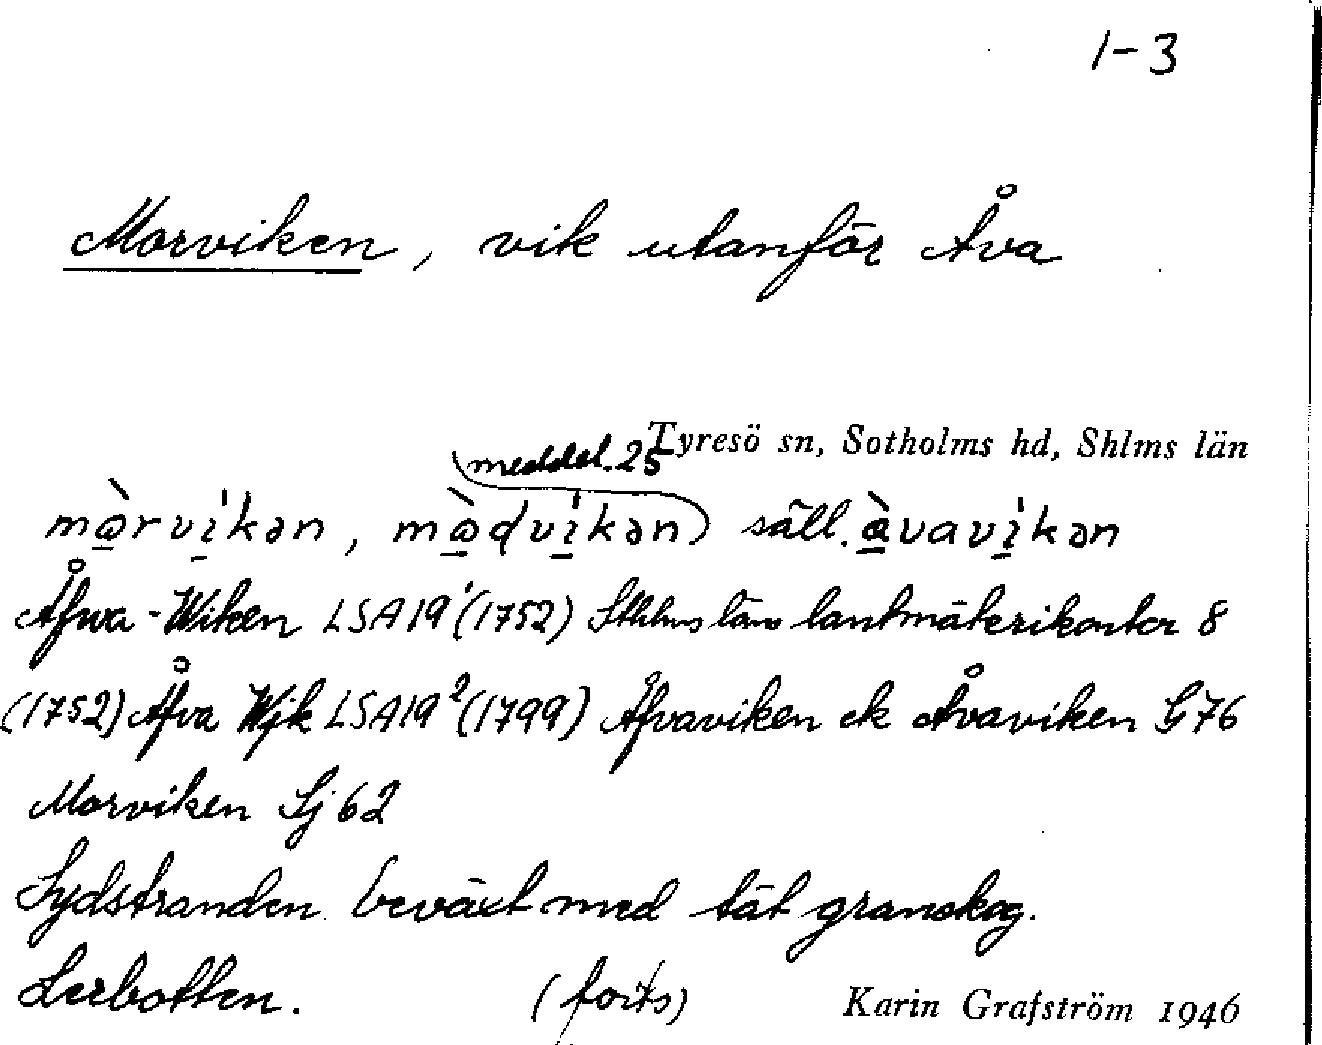 1-3
Morviken, vik utanför Åva
Tyresö sn, Sotholms hd, Shlms län
meddel. 25
mòrvíkən, mòdvíkən) säll. àvavíkən
Åfwa-Wiken LSA 19¹ (1752) Sthlms läns lantmäterikontor 8
(1752) Åfva Wjk LSA 19² (1799) Åfvaviken ek Åvaviken G 76
Morviken Sj 62
Sydstranden beväxt med tät granskog.
Lerbotten. (forts)
Karin Grafström 1946